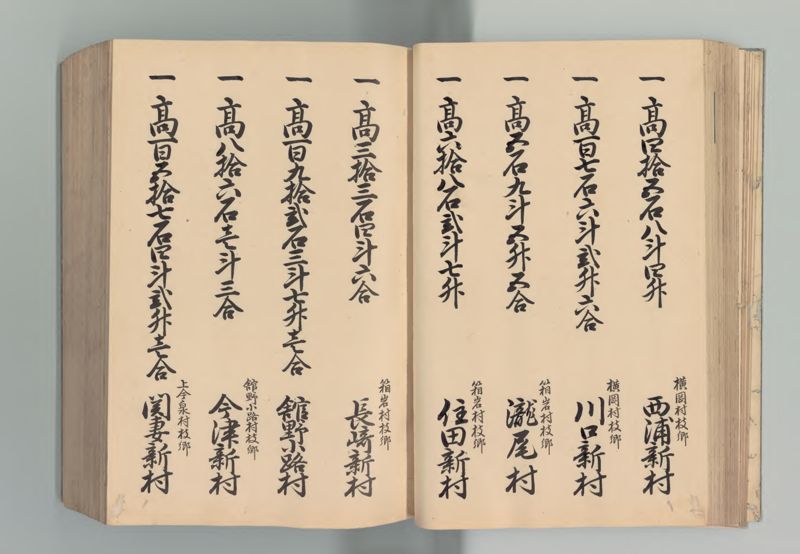 一 高四拾五石八斗四升
横岡村枝郷
西浦新村
一 高百七石六斗弐升六合
横岡村枝郷
川口新村
一 高五石九斗五升五合
箱岩村枝郷
瀧尾村
一 高六拾八石弐斗七升
箱岩村枝郷
住田新村
一 高三拾三石四斗六合
箱岩村枝郷
長崎新村
一 高百九拾弐石三斗七升壱合
舘野小路村
一 高八拾六石壱斗三合
舘野小路村枝郷
今津新村
一 高百五拾七石四斗弐升壱合
上今泉村枝郷
関妻新村